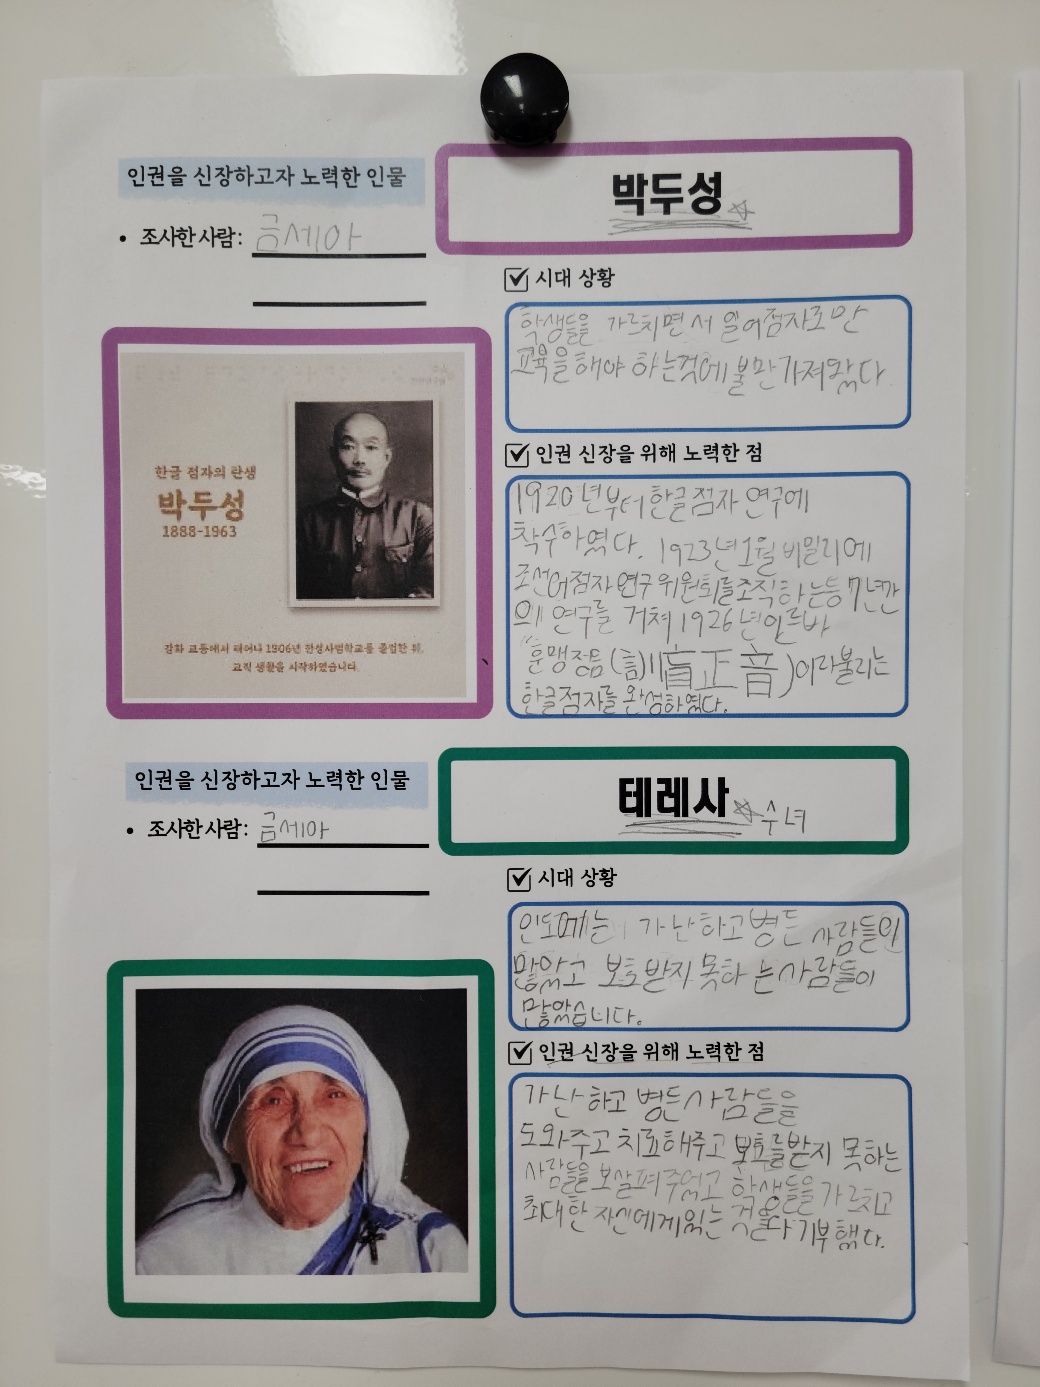 인권을 신장하고자 노력한 인물
박두성
• 조사한 사람: 금세아
시대 상황
학생들을 가르치면서 일어점자로만
교육을해야 하는것에 불만가져왔다
인권 신장을 위해 노력한 점
1920년부터 한글점자 연구에
착수하였다. 1923년 1월 비밀리에
조선어점자 연구 위원회를조직하는등 7년간
의 연구를 거쳐 1926년 일르바
"훈맹정음(訓盲正音)이라불리는
한글점자를 완성하였다.
한글 점자의 탄생
박두성
1888-1963
강화 교동에서 태어나 1906년 한성사범학교를 졸업한 뒤,
교직 생활을 시작하였습니다.
인권을 신장하고자 노력한 인물
테레사 수녀
• 조사한 사람: 금세아
시대 상황
인도에는 가난하고 병든 사람들이
많았고 보호받지 못하는 사람들이
많았습니다.
인권 신장을 위해 노력한 점
가난하고 병든사람들을
도와주고 치료해주고 보호를받지 못하는
사람들을 보살펴주었고 학생들을 가르치고
최대한 자신에게있는 것을다 기부했다.